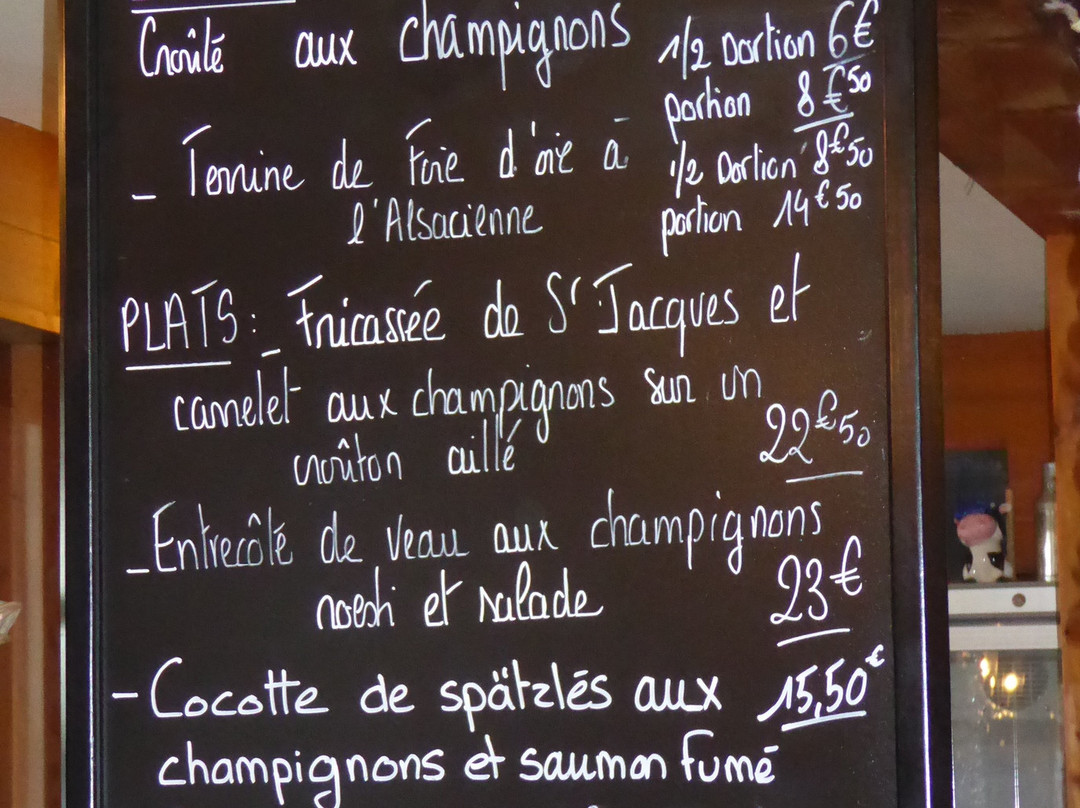 Croûte aux champignons 1/2 portion 6€
portion 8€50
- Terrine de Foie d'oie à 1/2 portion 8€50
l'Alsacienne portion 14€50
PLATS: - Fricassée de St Jacques et
carrelet aux champignons sur un
croûton aillé 22€50
- Entrecôte de veau aux champignons
roesti et salade 23€
- Cocotte de spätzlés aux 15,50€
champignons et saumon fumé